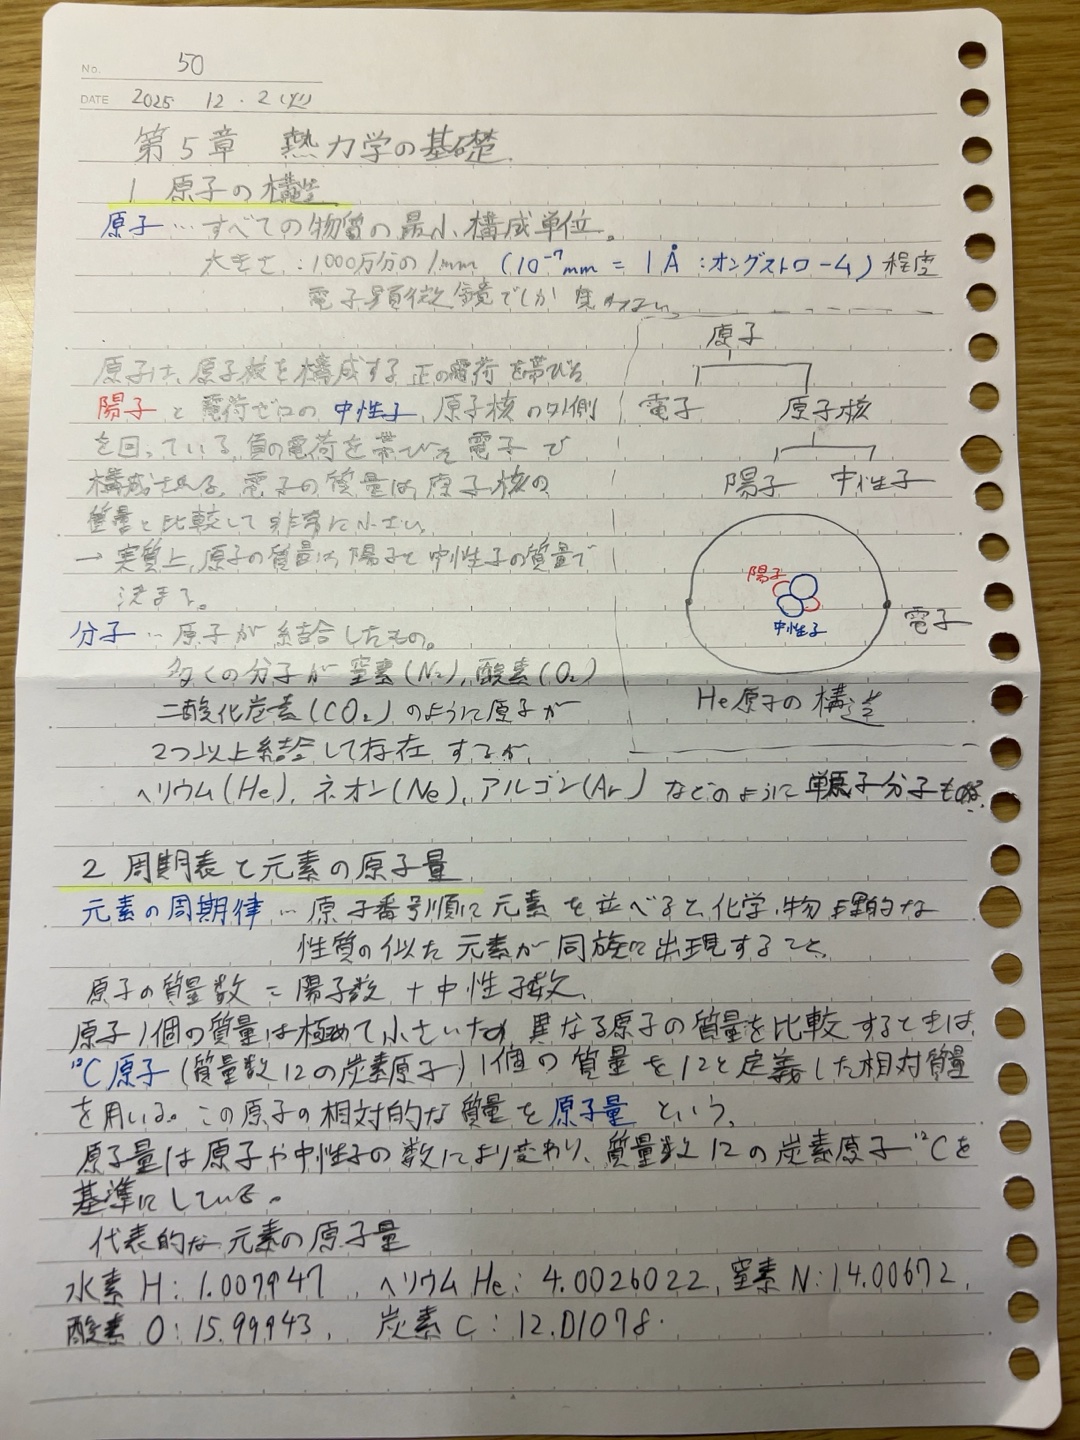 No. 50
DATE 2025 12・2(火)
第5章 熱力学の基礎
1 原子の構造
原子…すべての物質の最小構成単位。
大きさ:1000万分の1mm (10⁻⁷mm = 1Å:オングストローム) 程度
電子顕微鏡でしか見れない。
原子は、原子核を構成する正の電荷を帯びる
陽子と電荷ゼロの中性子、原子核の外側
を回っている負の電荷を帯びた電子で
構成される。電子の質量は原子核の
質量と比較して非常に小さい。
→実質上、原子の質量は陽子と中性子の質量で
決まる。
分子…原子が結合したもの。
多くの分子が窒素(N₂)、酸素(O₂)
二酸化炭素(CO₂)のように原子が
2つ以上結合して存在するが、
ヘリウム(He)、ネオン(Ne)、アルゴン(Ar)などのように単原子分子もある。
原子
電子 原子核
陽子 中性子
陽子
中性子
電子
He原子の構造
2 周期表と元素の原子量
元素の周期律…原子番号順に元素を並べると化学、物理的な
性質の似た元素が同族に出現すること。
原子の質量数 = 陽子数 + 中性子数、
原子1個の質量は極めて小さいため異なる原子の質量を比較するときは、
¹²C原子(質量数12の炭素原子)1個の質量を12と定義した相対質量
を用いる。この原子の相対的な質量を原子量という。
原子量は原子や中性子の数により変わり、質量数12の炭素原子¹²Cを
基準にしている。
代表的な元素の原子量
水素 H:1.007947、ヘリウム He:4.0026022、窒素 N:14.00672、
酸素 O:15.99943、炭素 C:12.01078.